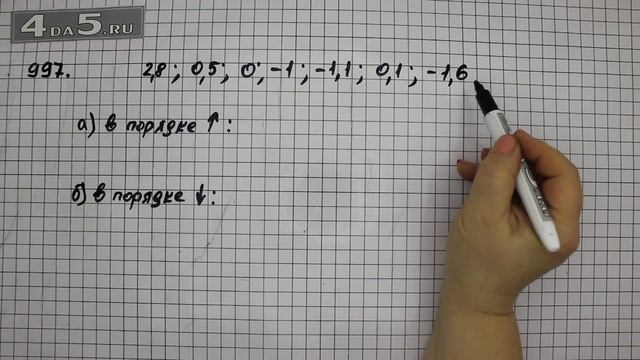 4ДА5.RU
997. 2,8; 0,5; 0; -1; -1,1; 0,1; -1,6
а) в порядке ↑:
б) в порядке ↓: